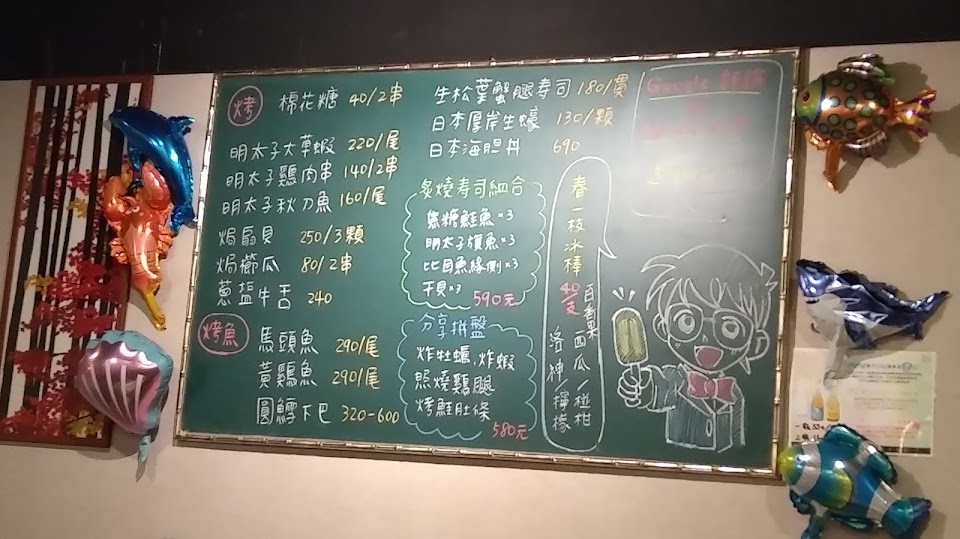 烤
棉花糖 40/2串
明太子大草蝦 220/尾
明太子雞肉串 140/2串
明太子秋刀魚 160/尾
焗扇貝 250/3顆
焗櫛瓜 80/2串
蔥塩牛舌 240
烤魚
馬頭魚 290/尾
黃雞魚 290/尾
圓鱈下巴 320-600
生松葉蟹腿寿司 180/貫
日本厚岸生蠔 130/顆
日本海胆丼 690
炙燒寿司組合
焦糖鮭魚×3
明太子旗魚×3
比目魚緣側×3
干貝×3
590元
分享拼盤
炸牡蠣、炸蝦
照燒雞腿
烤鱈肚條
580元
春一枝冰棒
40支
百香果
西瓜/椪柑
洛神/檸檬
Google